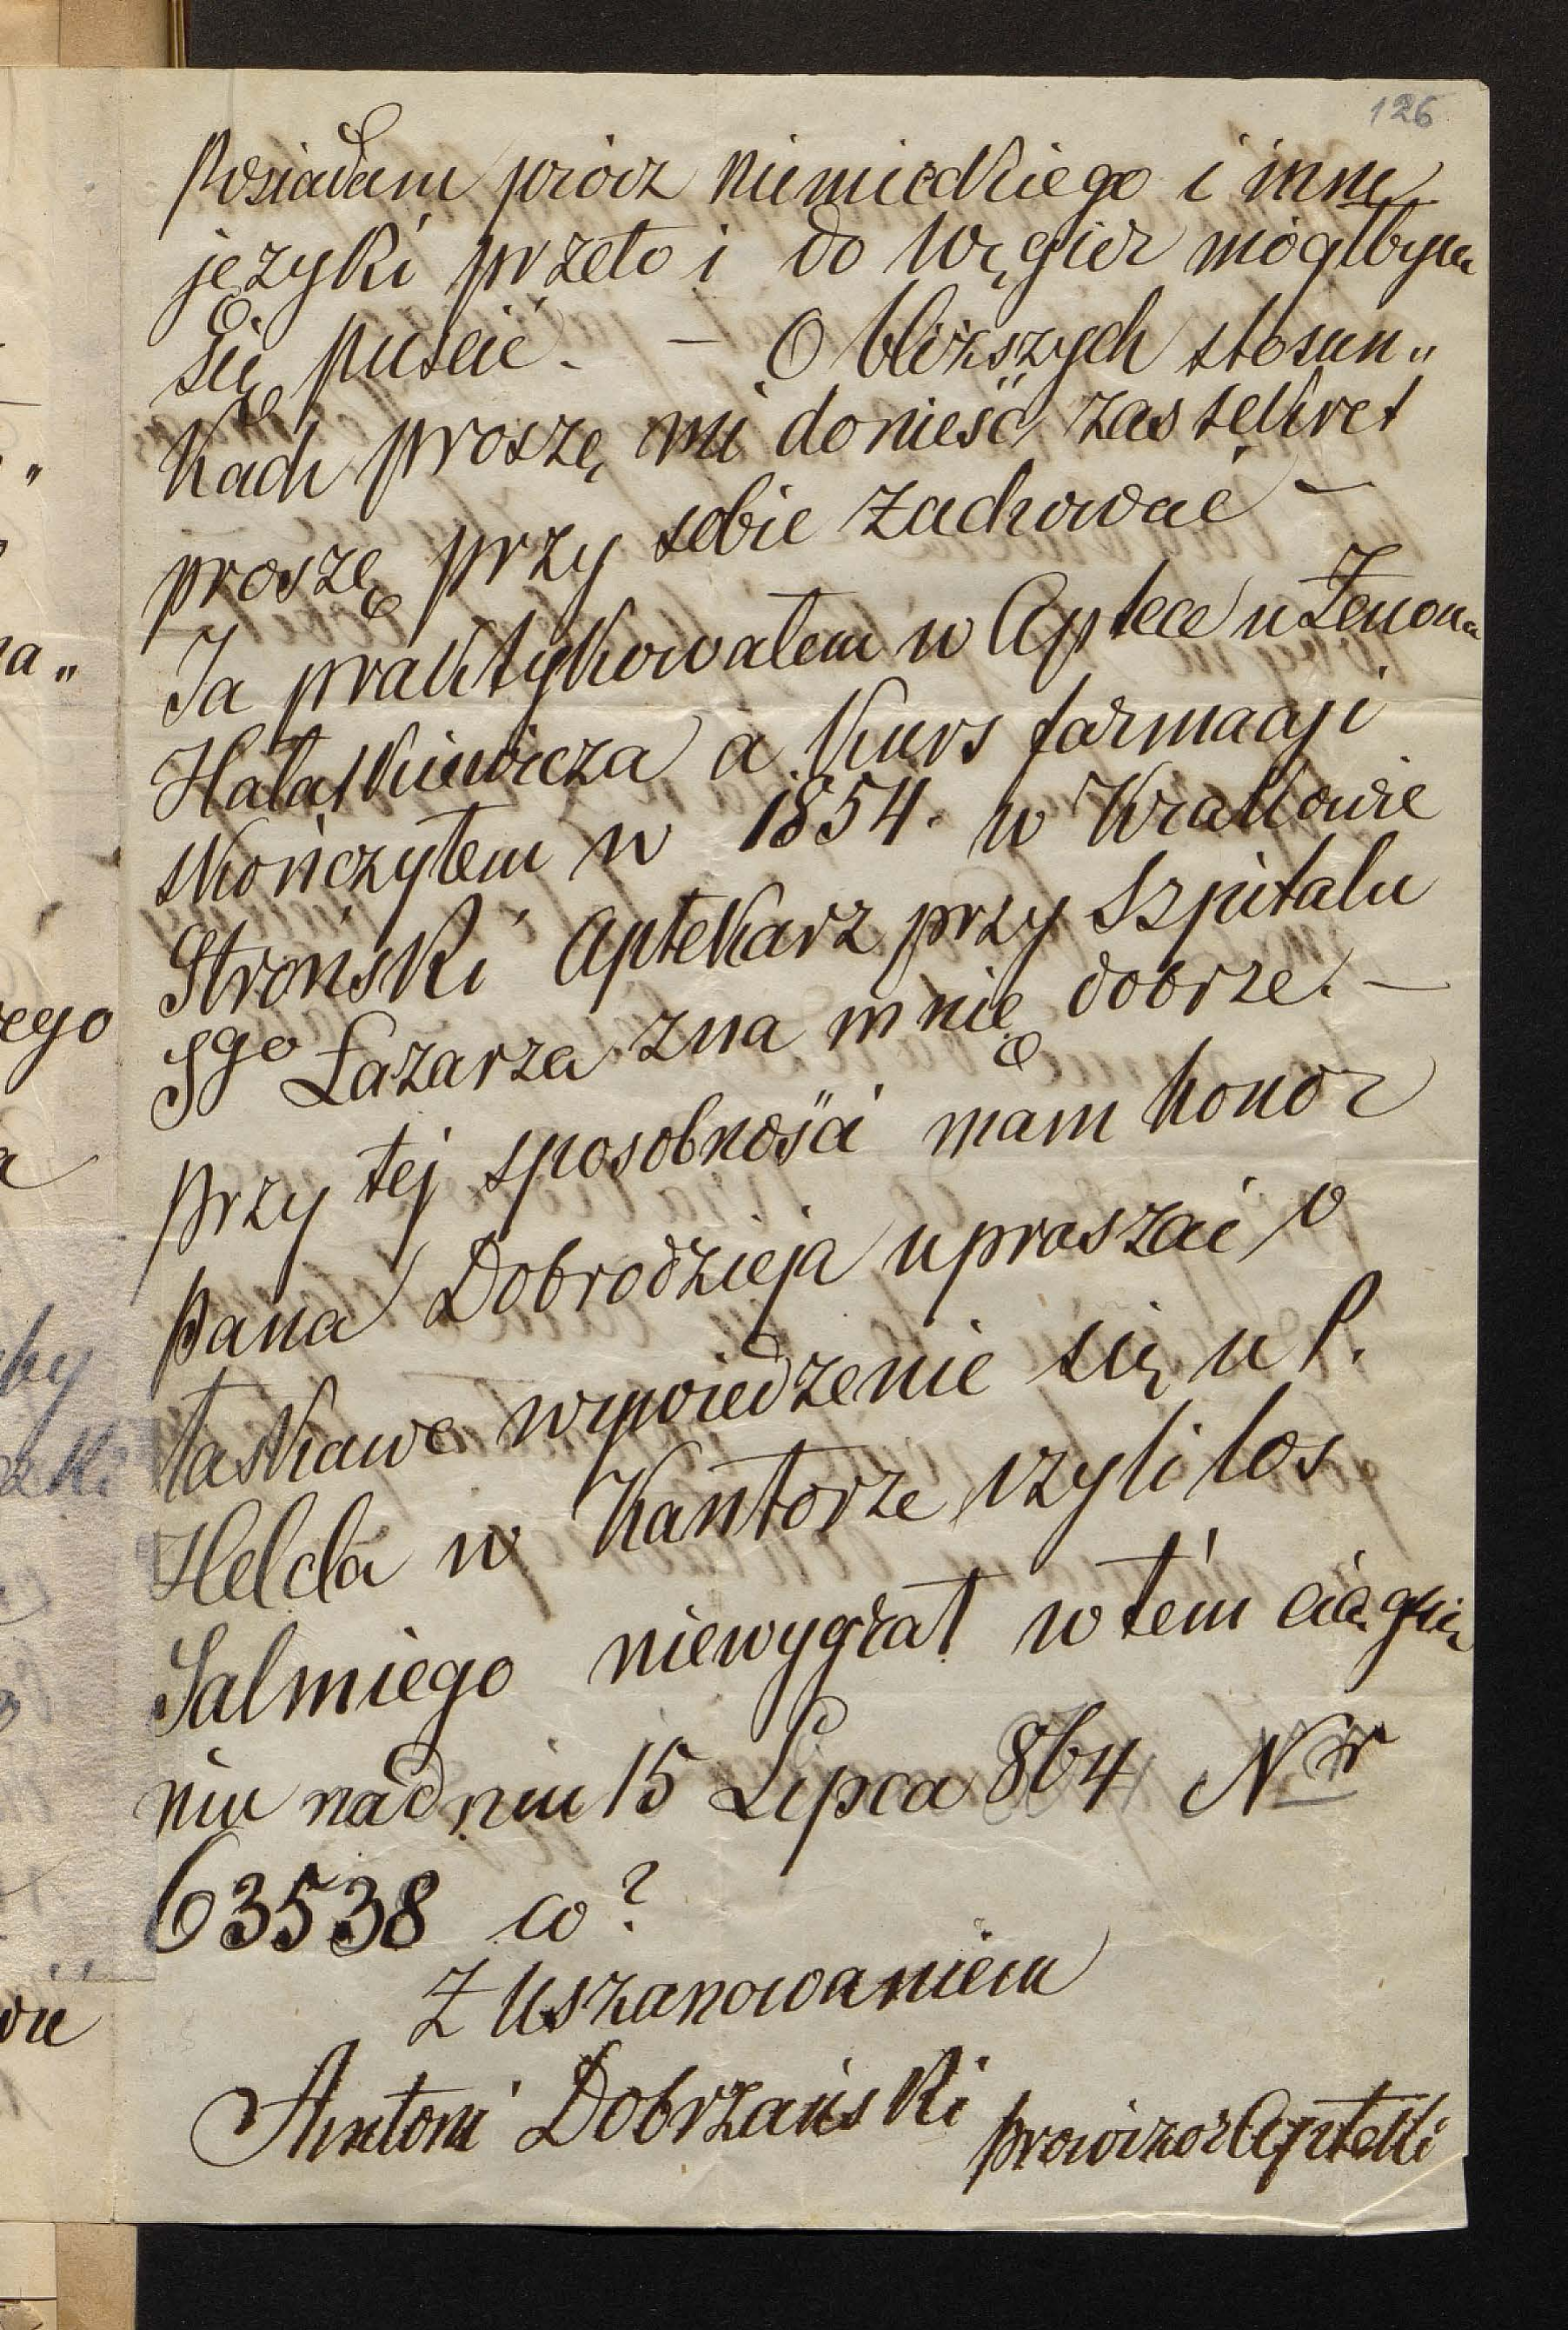 126
Posiadam prócz niemieckiego i inne
języki przeto i do Węgier mógłbym
się puścić. — O bliższych stosun„
kach proszę mi donieść zaś sekret
proszę przy sobie zachować —
Ja praktykowałem w Aptece u Zenona
Hałatkiewicza a kurs farmacji
skończyłem w 1854. w Krakowie
Stroński Aptekarz przy Szpitalu
Sgo Łazarza zna mnię dobrze. —
przy tej sposobności mam honor
pana Dobrodzieja upraszać o
łaskawe wywiedzenie się u P.
Helcla w Kantorze czyli los
Salmiego niewygrał w tém ciągnie
niu nadniu 15 Lipca 864 Nr
63538 co?
Z Uszanowaniem
Antoni Dobrzański prowizor Apteki
ego
a
by
wie